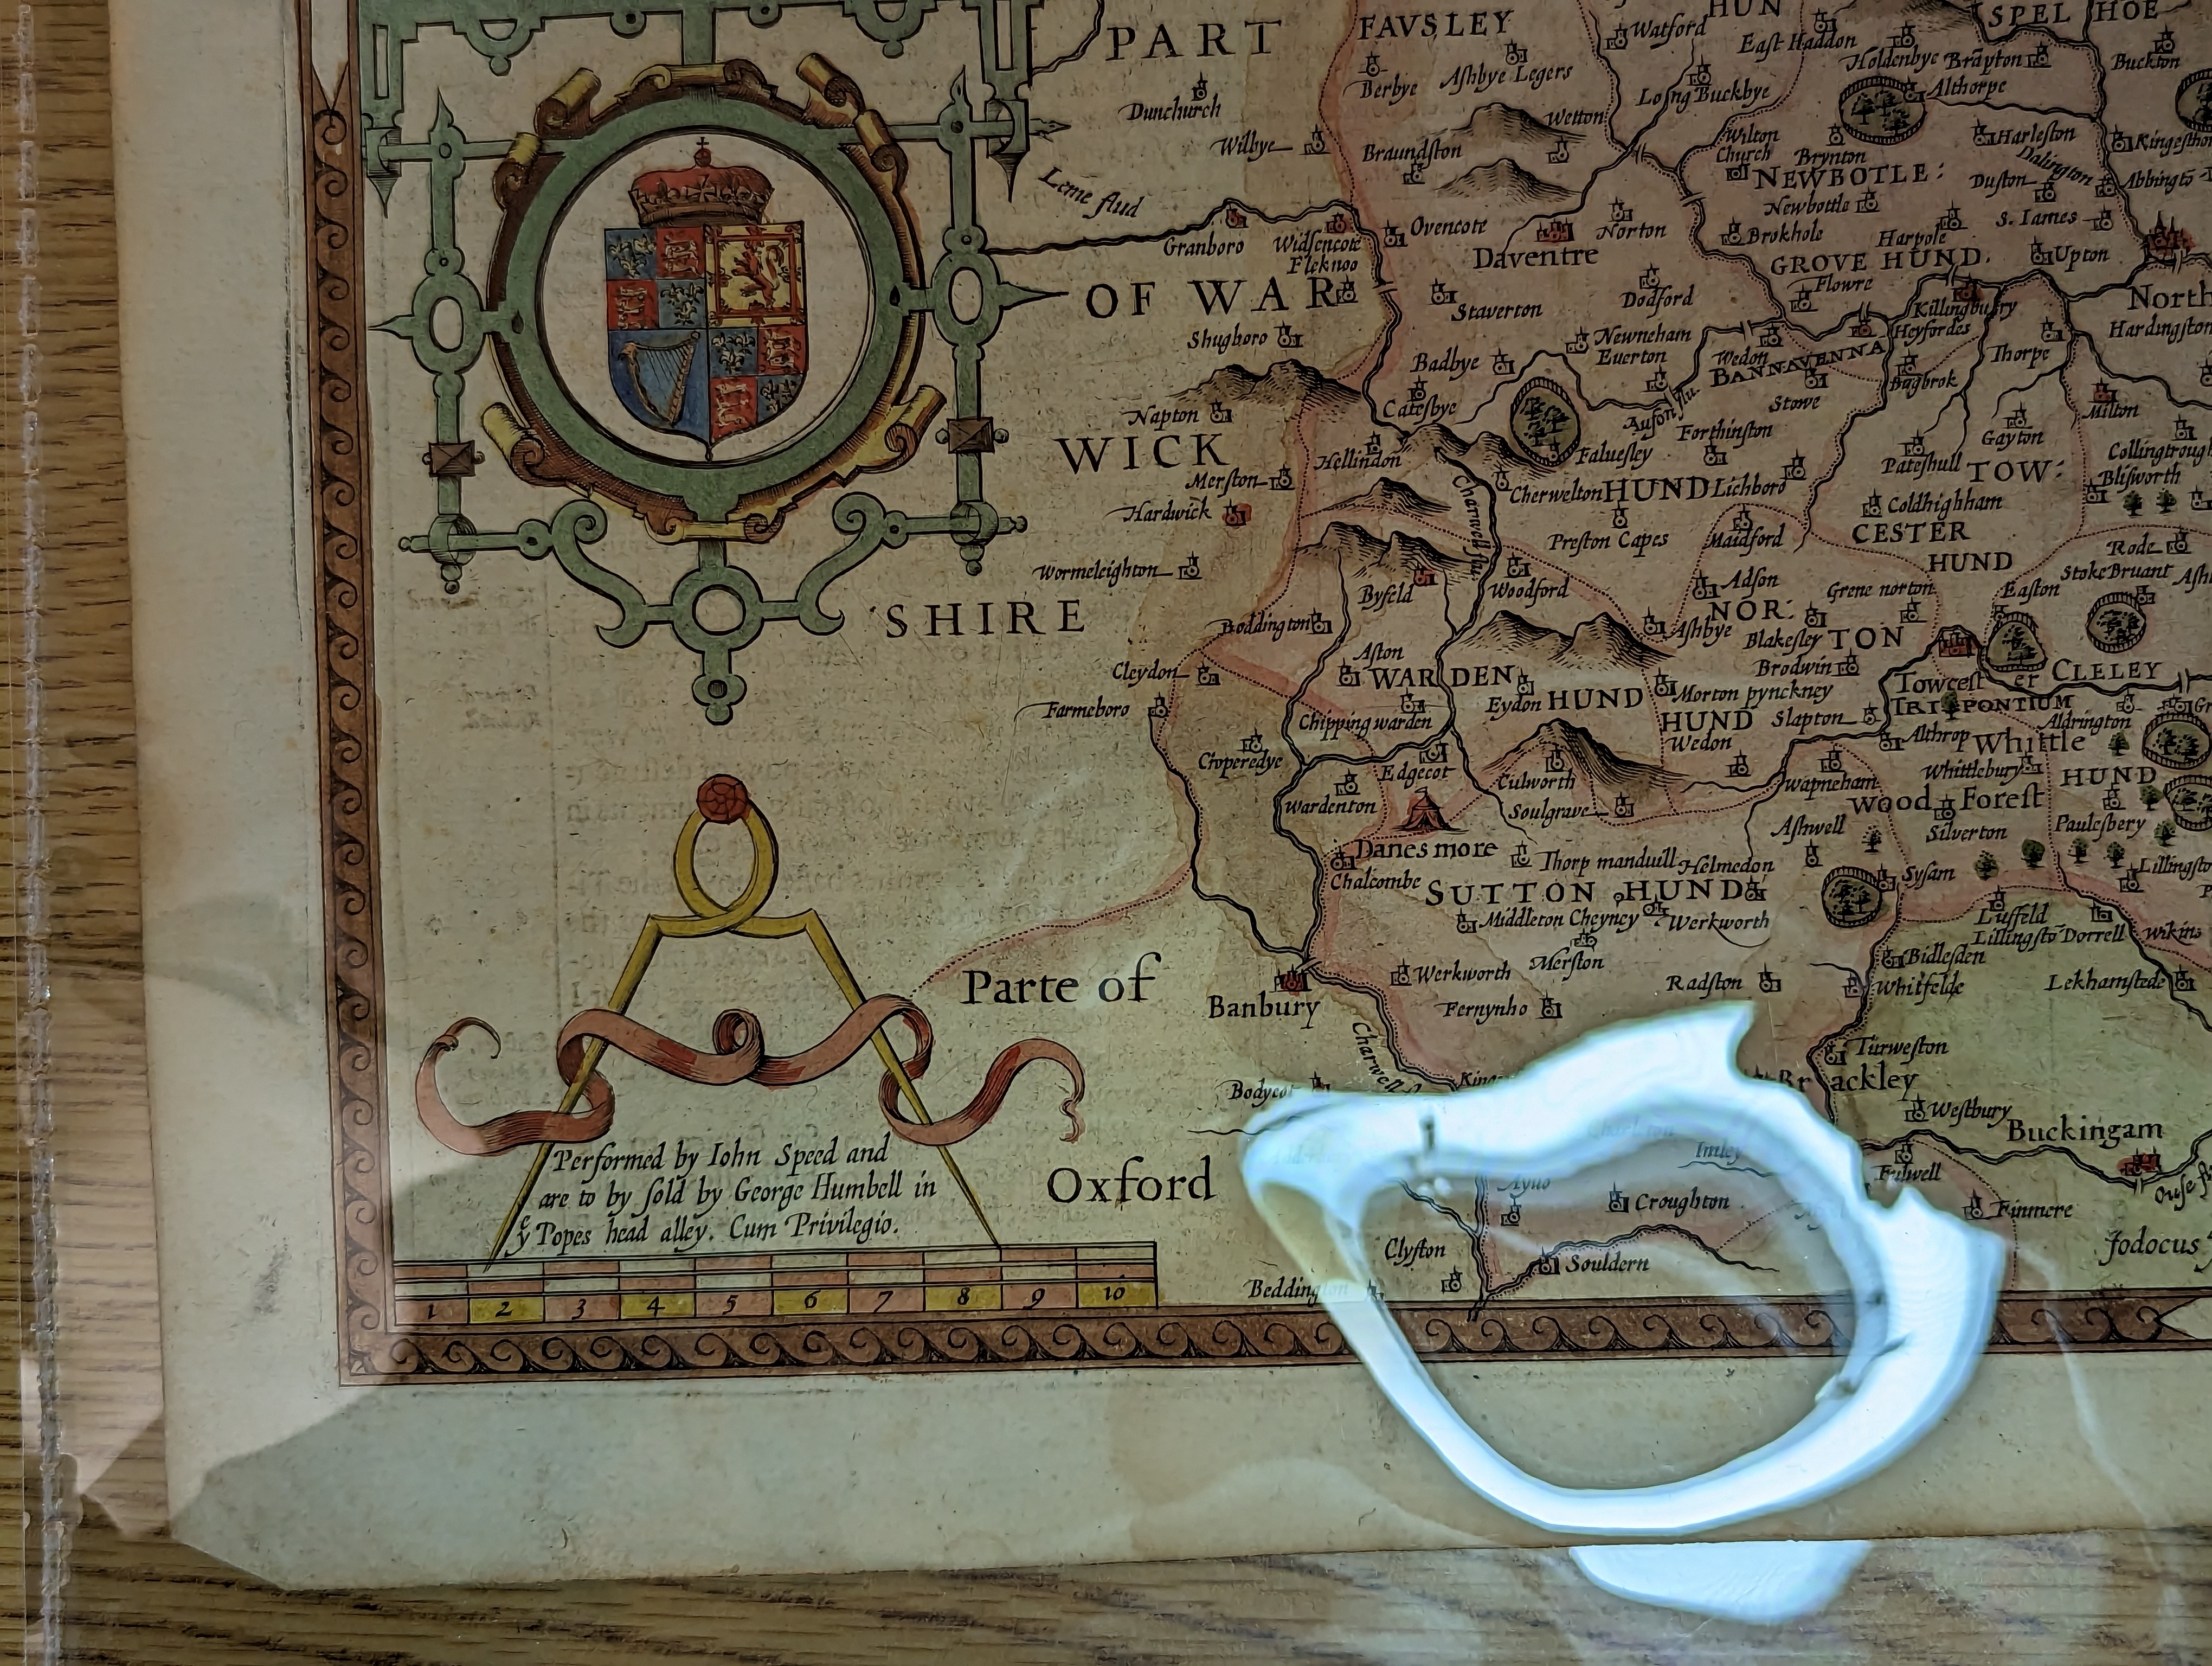 PART
OF WAR
WICK
SHIRE
FAVSLEY
HUN
SPEL HOE
Watford
East Haddon
Holdenbye
Brāpton
Buckton
Dunchurch
Berbye
Ashbye Legers
Long Buckbye
Althorpe
Wilbye
Braundston
Wetton
Wilton
Church
Brynton
Harleston
Dalington
Leme flud
NEWBOTLE:
Duston
Abbingtō
Newbottle
S. Iames
Granboro
Widsencote
Fleknoo
Ovencote
Daventre
Norton
Brokhole
Harpole
Upton
GROVE HUND.
Flowre
Staverton
Dodford
Killingbury
North
Heyfordes
Hardingston
Shugboro
Badbye
Newneham
Euerton
Wedon
BANNAVENNA
Thorpe
Bugbrok
Napton
Catesbye
Auson flu.
Stowe
Milton
Forthinston
Gayton
Hellindon
Faluesley
Pateshull
TOW:
Collingtrough
Blisworth
Merston
Cherwelton
HUND
Lichboro
Coldhighham
Hardwick
Charwell flu
Preston Capes
Maidford
CESTER
HUND
Rode
Wormeleighton
Byfeld
Woodford
Adson
Grene norton
Stoke Bruant
Easton
NOR:
TON
Boddington
Ashbye
Blakesley
Aston
WARDEN
HUND
Brodwin
CLELEY
Cleydon
Eydon
Morton pynckney
Towcester
Farmeboro
Chipping warden
HUND
Slapton
TRIPONTIUM
Aldrington
Wedon
Althrop
Whittle
Croperedye
Edgecot
Culworth
Whittlebury
HUND
Wardenton
Soulgrave
Wapneham
wood Forest
Ashwell
Silverton
Paulesbery
Danes more
Thorp manduill
Helmedon
Chalcombe
SUTTON HUND
Sysam
Middleton Cheyney
Werkworth
Luffeld
Lillingstō Dorrell
wikins
Parte of
Oxford
Banbury
Werkworth
Merston
Bidlesden
Radston
Whitfelde
Lekhamstede
Fernynho
Charwell
Turweston
Brackley
Westbury
Buckingam
Imley
Fulwell
Ouse
Croughton
Finmere
Clyston
Souldern
Jodocus
Beddington
Performed by Iohn Speed and
are to by sold by George Humbell in
yᵉ Popes head alley. Cum Privilegio.
1 2 3 4 5 6 7 8 9 10